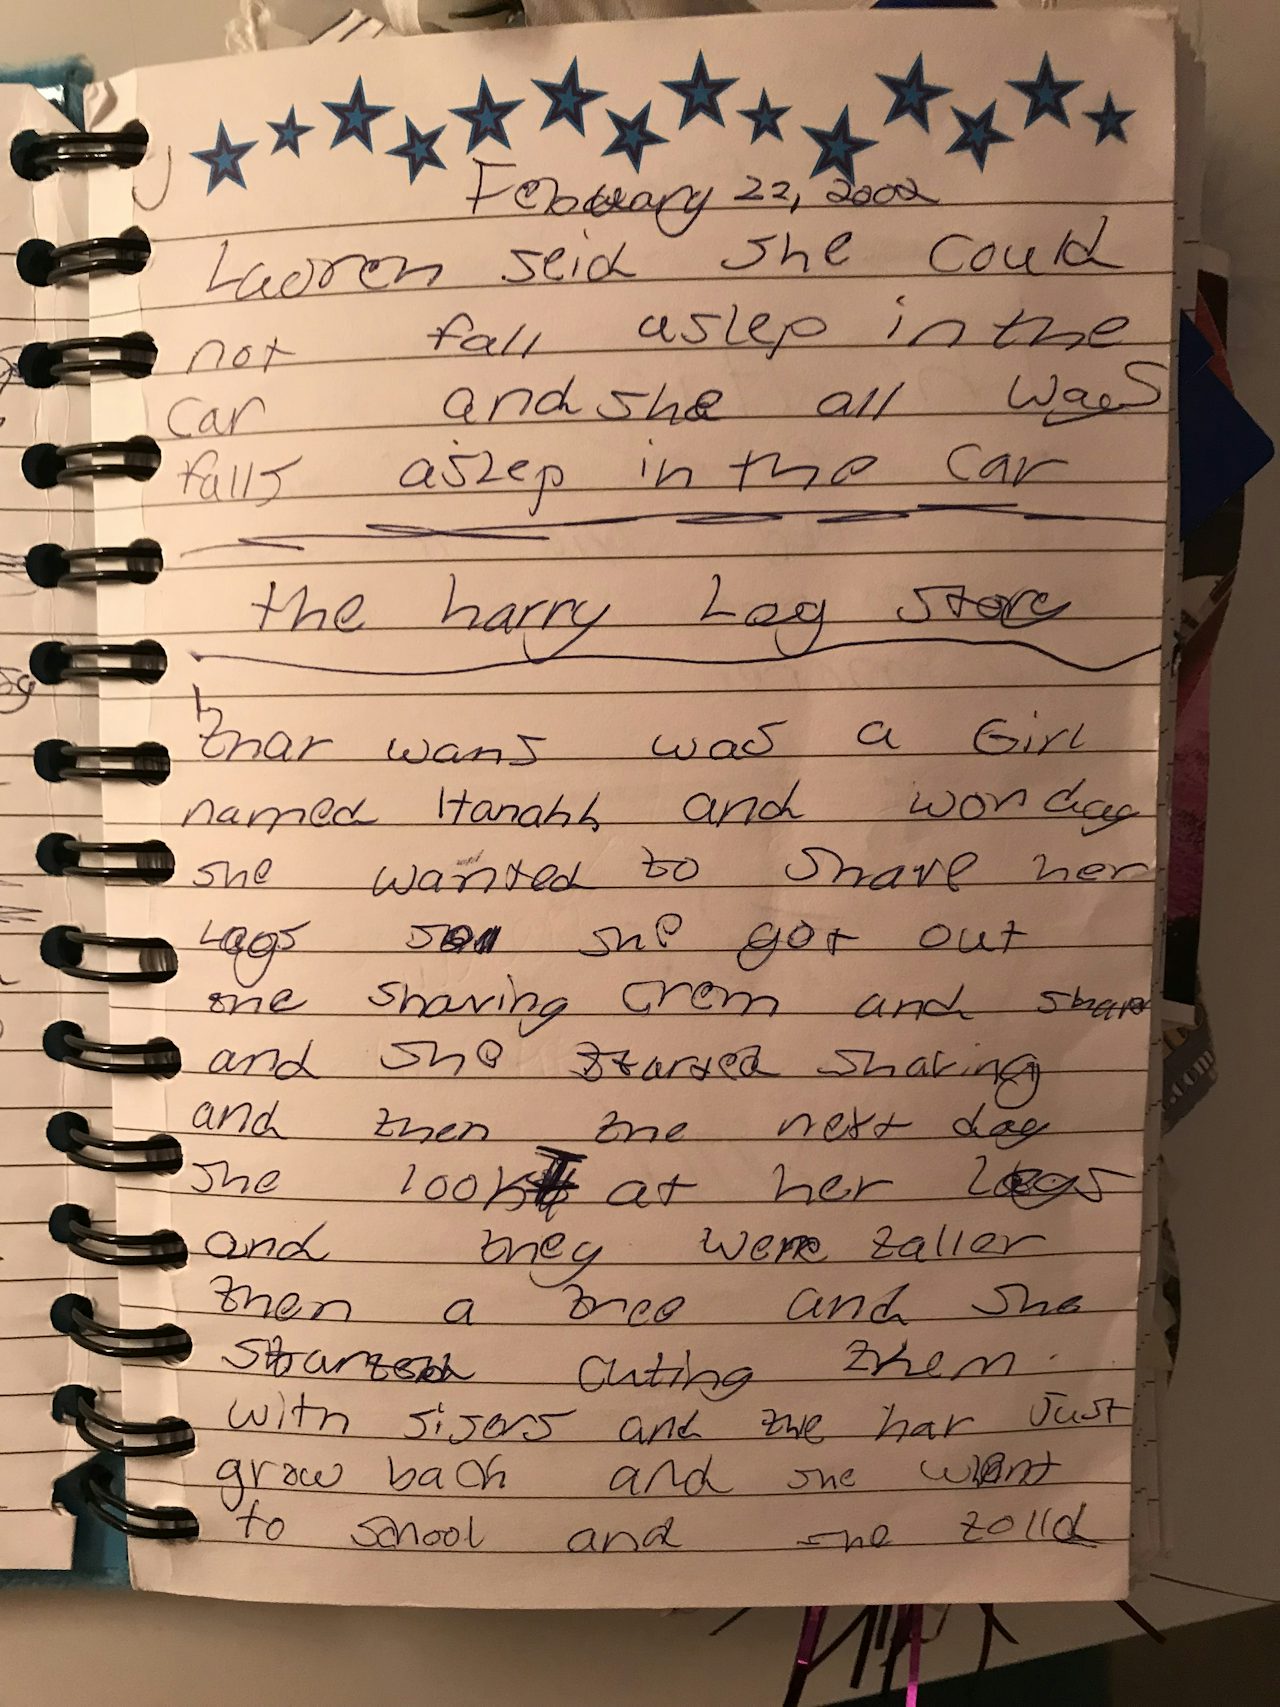 February 22, 2002
Lauren seid she could
not fall aslep in the
car and she all waes
falls aslep in the car
the harry Leg store
thar wans was a Girl
named Hanahh and won day
she wanted to shave her
Legs so she got out
the shaving crem and
and she started shaving
and then the next day
she look at her legs
and they were taller
then a tree and she
started cuting them
with sisors and the har Just
grow back and she went
to school and she tolld